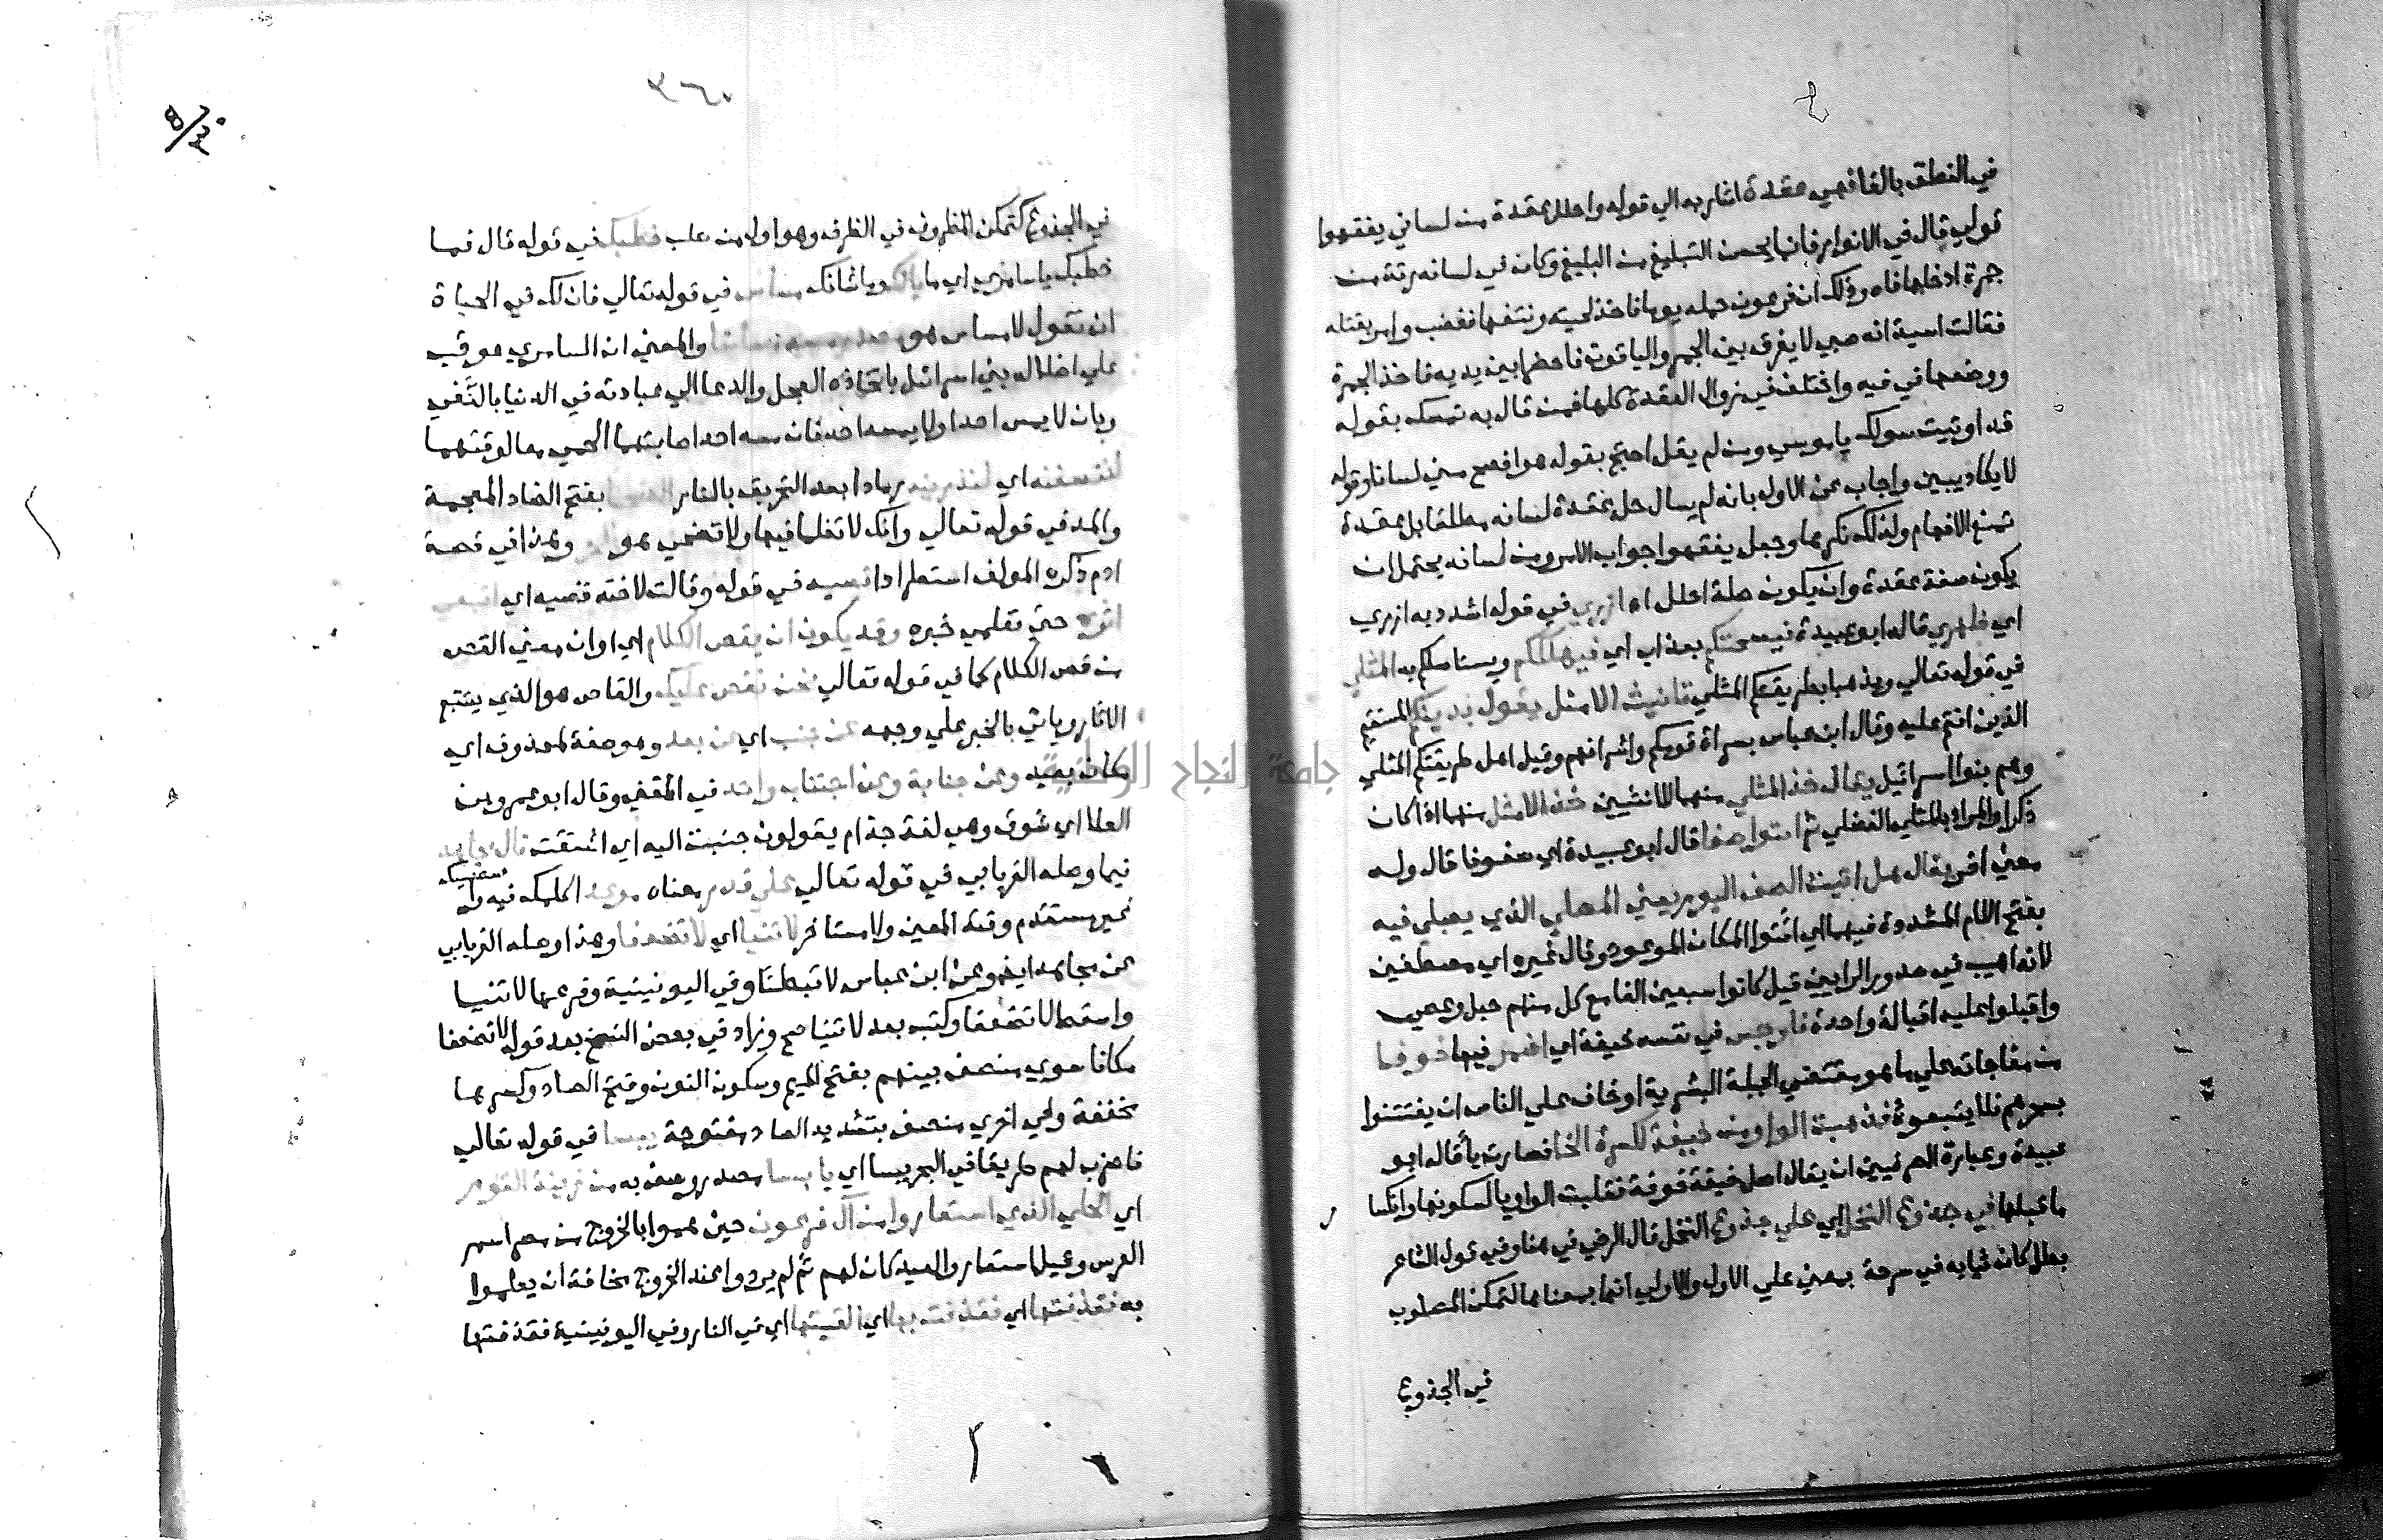 في النطق بالقافهي عقدة اشار به الي قوله واحلل عقدة من لساني يفقهوا
قولي قال في الانوار فانما يحسن التبليغ من البليغ وكان في لسانه رتة من
جمرة ادخلها فاه وذلك ان فرعون حمله يوما فاخذ لحيته ونتفها فغضب وامر بقتله
فقالت اسية انه صبي لا يفرق بين الجمر والياقوت فاحضرا بين يديه فاخذ الجمرة
ووضعها في فيه واختلف في زوال العقدة كلها فمن قال به تمسك بقوله
قد اوتيت سولك يا موسي ومن لم يقل احتج بقوله هو افصح مني لسانا وقوله
لا يكاد يبين واجاب عن الاول بانه لم يسال حل عقدة لسانه مطلقا بل عقدة
تمنع الافهام ولذلك نكرها وجعل يفقهوا جواب الامر ومن لسانه يحتمل ان
يكون صفة عقدة وان يكون صلة احلل اه ازري في قوله اشدد به ازري
اي ظهري قاله ابو عبيدة فيسحتكم بعذاب اي فيهلككم ويستاصلكم به المثلي
في قوله تعالي ويذهبا بطريقتكم المثلي تانيث الامثل يقول بدينكم المستقيم
الذين انتم عليه وقال ابن عباس بسراة قومكم واشرافهم وقيل اهل طريقتكم المثلي
وهم بنوا اسرائيل يقال خذ المثلي منهما للانثيين خذ الامثل منهما اذا كان
ذكرا والمراد بالمثلي الفضلي ثم ائتوا صفا قال ابو عبيدة اي صفوفا قال وله
معني اخر يقال هل اتيت الصف اليوم يعني المصلي الذي يصلي فيه
بفتح اللام المشددة فيهما اي ائتوا المكان الموعود وقال غيره اي مصطفين
لانه اهيب في صدور الرايين قيل كانوا سبعين الفا مع كل منهم حبل وعصي
واقبلوا عليه اقبالة واحدة فاوجس في نفسه خيفة اي اضمر فيها خوفا
من مفاجاته علي ما هو مقتضي الجبلة البشرية او خاف علي الناس ان يفتتنوا
بسحرهم فلا يتبعوه فذهبت الواو من خيفة لكسرة الخا فصارت يا قاله ابو
عبيدة وعبارة الصرفيين ان يقال اصل خيفة خوفة فقلبت الواو يا لسكونها وانكسار
ما قبلها في جذوع النخل اي علي جذوع النخل قال الرضي في هنا وفي قول الشاعر
بطل كان ثيابه في سرحة بمعني علي الاول والاولي انها بمعناها لتمكن المصلوب
في الجذوع
٣٦٠
في الجذوع كتمكن المظروف في الظرف وهو اول من صلب خطبك في قوله قال فما
خطبك يا سامري اي ما بالك وما شانك مساس في قوله تعالي فان لك في الحياة
ان تقول لا مساس هو مصدر ماسه مساسا والمعني ان السامري عوقب
علي اضلال بني اسرائيل باتخاذه العجل والدعا الي عبادته في الدنيا بالنفي
وبان لا يمس احدا ولا يمسه احد فان مسه احد اصابتهما الحمي معا لوقتهما
لننسفنه اي لنذرينه رمادا بعد التحريق بالنار الضحا بفتح الضاد المعجمة
والمد في قوله تعالي وانك لا تظما فيها ولا تضحي هو الحر وهذا في قصة
ادم ذكره المولف استطرادا قصيه في قوله وقالت لاخته قصيه اي اتبعي
اثره حتي تعلمي خبره وقد يكون ان يقص الكلام اي او ان معني القص
من قص الكلام كما في قوله تعالي نحن نقص عليك والقاص هو الذي يتتبع
الاثار وياتي بالخبر علي وجهه عن جنب اي عن بعد وهو صفة لمحذوف اي
مكان بعيد وعن جنابة وعن اجتناب واحد في المعني وقال ابو عمرو بن
العلا اي شوق وهي لغة جذام يقولون جنبت اليه اي اشتقت قال مجاهد
فيما وصله الفريابي في قوله تعالي علي قدر معناه موعد اكلمك فيه
غير مستقدم وقته المعين ولا مستاخر لا تنيا اي لا تضعفا وهذا وصله الفريابي
عن مجاهد ايضا وعن ابن عباس لا تبطئا وفي اليونينية وفرعها لا تنيا
واسقط لا تضعفا وكتب بعد لا تنيا صح وزاد في بعض النسخ بعد قوله لا تضعفا
مكانا سوي منصف بينهم بفتح الميم وسكون النون وفتح الصاد وكسرها
مخففة ولابي اخري منصف بتشديد الصاد مفتوحة يبسا في قوله تعالي
فاضرب لهم طريقا في البحر يبسا اي يابسا مصدر وصف به من زينة القوم
اي الحلي الذي استعاروا من آل فرعون حين هموا بالخروج من مصر اسم
العرس وقيل استعاروا لعيد كان لهم ثم لم يردوا عند الخروج مخافة ان يعلموا
به فقذفتها اي فقذفت بها اي القيتها اي في النار وفي اليونينية فقذفتها